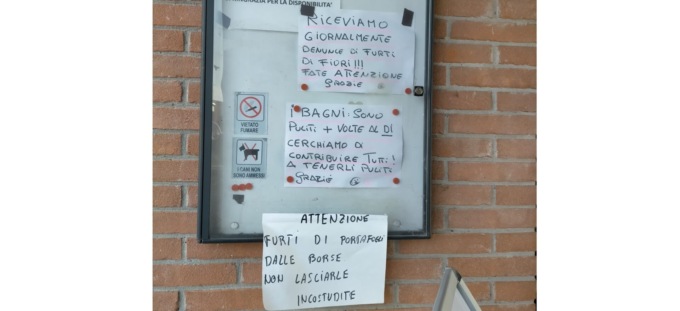 RINGRAZIA PER LA DISPONIBILITA'
RICEVIAMO
GIORNALMENTE
DENUNCE DI FURTI
DI FIORI!!!
FATE ATTENZIONE
GRAZIE
VIETATO
FUMARE
I CANI NON
SONO AMMESSI
I BAGNI SONO
PULITI + VOLTE AL DI
CERCHIAMO DI
CONTRIBUIRE TUTTI!
A TENERLI PULITI
GRAZIE
ATTENZIONE
FURTI DI PORTAFOGLI
DALLE BORSE
NON LASCIARLE
INCOSTUDITE